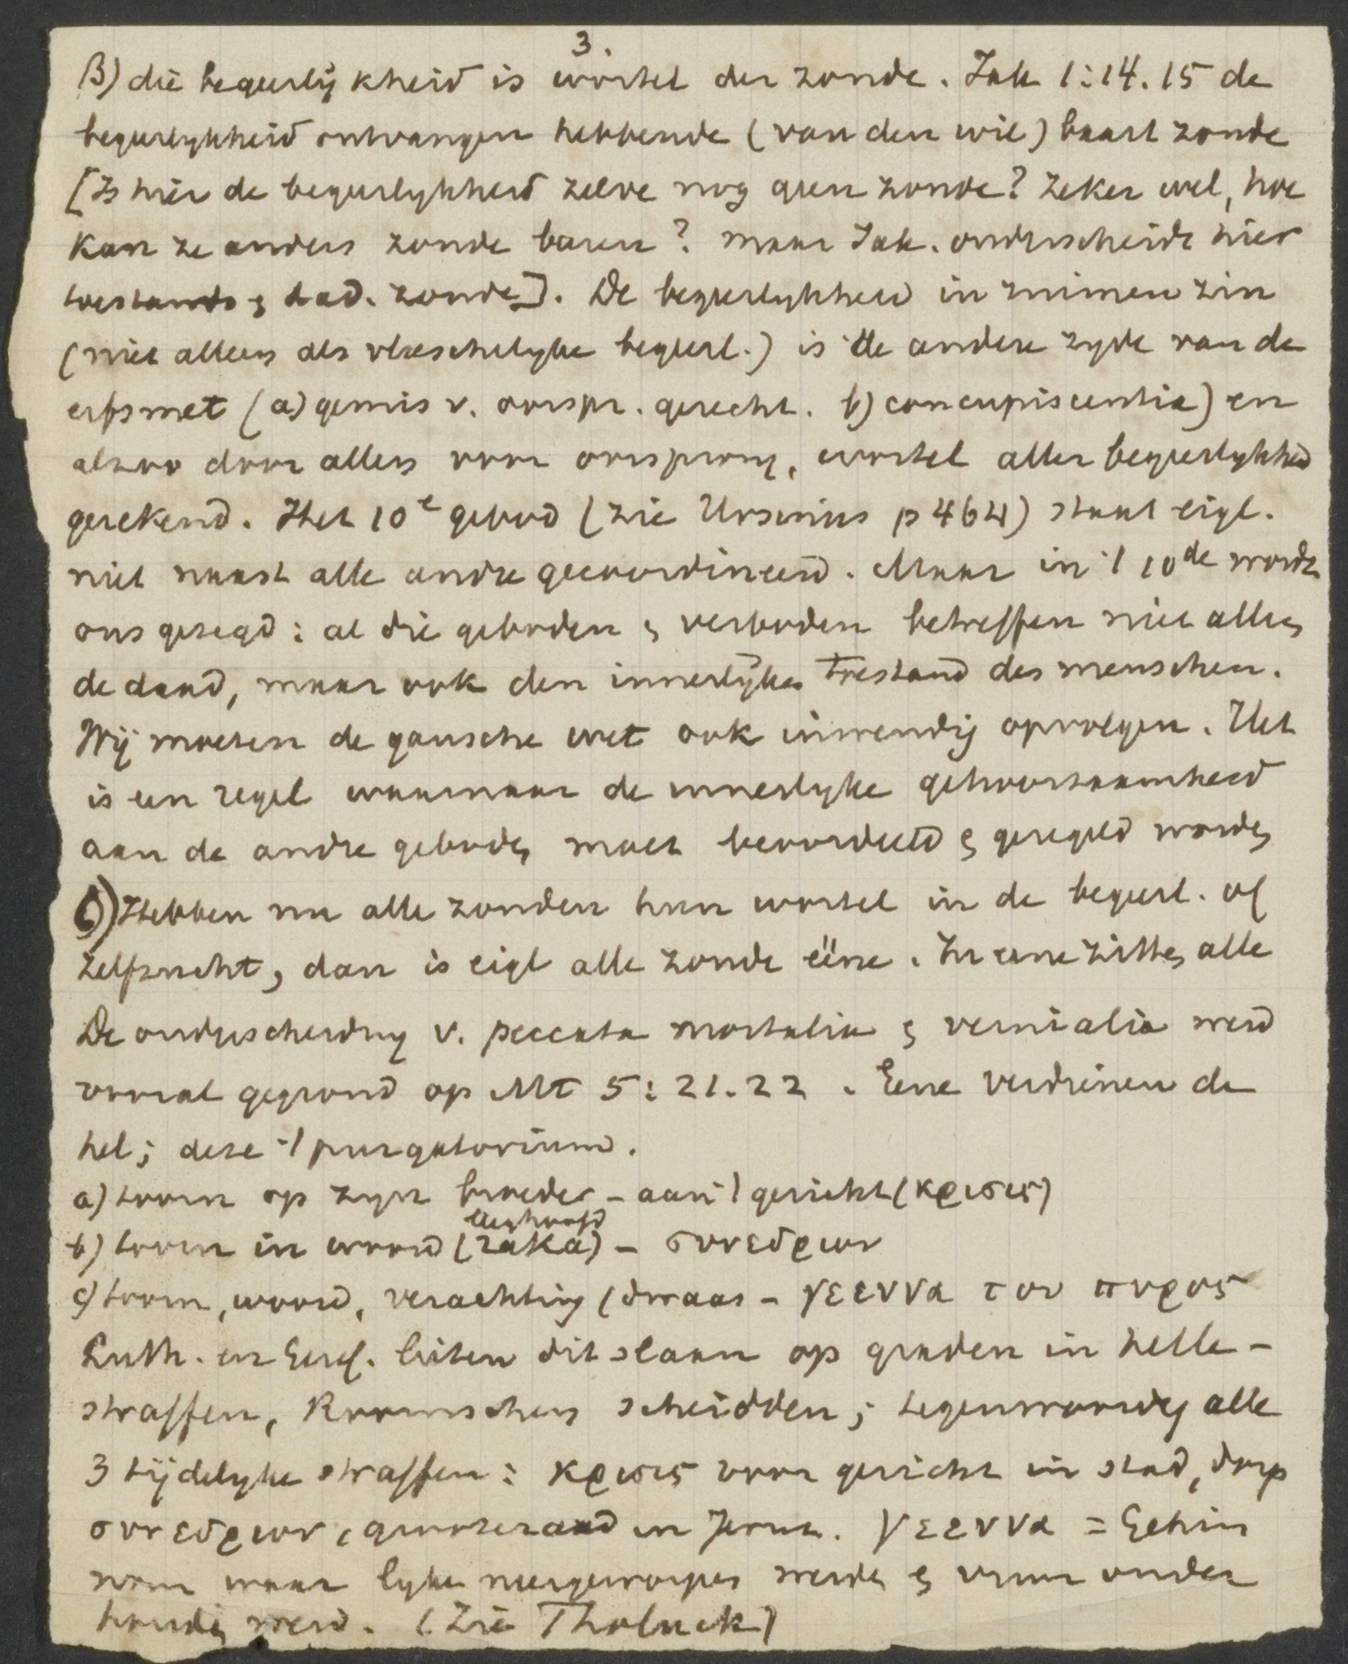 3.
β) die begeerlijkheid is wortel der zonde. Jak 1:14.15 de
begeerlykheid ontvangen hebbende (van den wil) baart zonde
[Is hier de begeerlykheid zelve nog geen zonde? Zeker wel, hoe
kan ze anders zonde baren? maar Jak. onderscheidt hier
toestands & daad. zonde]. De begeerlykheid in ruimen zin
(niet alleen als vleeschelyke begeerl.) is de andere zyde van de
erfsmet (a) gemis v. oorspr. gerecht. b) concupiscentia) en
alzoo door allen voor oorsprong, wortel aller begeerlykheid
gerekend. Het 10e gebod (zie Ursinus p 464) staat eigl.
niet naast alle andre gecoordineerd. Maar in 't 10de wordt
ons gezegd: al die geboden & verboden betreffen niet alleen
de daad, maar ook den innerlijken toestand des menschen.
Wij moeten de gansche wet ook inwendig opvolgen. Het
is een regel waarnaar de innerlyke gehoorzaamheid
aan de andre geboden moet beoordeeld & geregeld worden
6) Hebben nu alle zonden hun wortel in de begeerl. of
zelfzucht, dan is eigl alle zonde ééne. In eene zitten alle
De onderscheiding v. peccata mortalia & venialia werd
vooral gegrond op Mt 5:21.22. Eene verdienen de
hel; deze 't purgatorium.
a) toorn op zyn broeder – aan 't gericht (κρισις)
b) toorn in woord (raka) – συνεδριον
leeghoofd
c) toorn, woord, verachting (dwaas – γεεννα του πυρος
Luth. en Geref. lieten dit slaan op graden in helle-
straffen, Roomschen scheidden; tegenwoordig alle
3 tijdelyke straffen: κρισις voor gericht in stad, dorp
συνεδριον, groote raad in Jeruz. γεεννα = Gehin
nom waar lyken neergeworpen werden & vuur onder
houden werd. (Zie Tholuck)